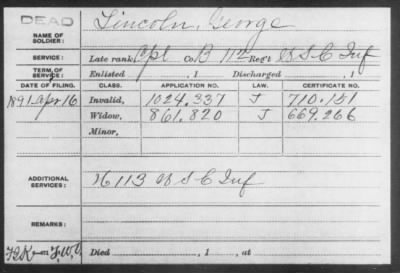 DEAD
NAME OF SOLDIER: Lincoln, George
SERVICE: Late rank Cpl Co. B 11th Reg't U S C Inf
TERM OF SERVICE: Enlisted , 1 Discharged , 1
DATE OF FILING. CLASS. APPLICATION NO. LAW. CERTIFICATE NO.
1891 Apr 16 Invalid, 1024.337 J 710.151
Widow, 861.820 J 669.266
Minor,
ADDITIONAL SERVICES: 113 U S C Inf
REMARKS:
Died , 1 , at